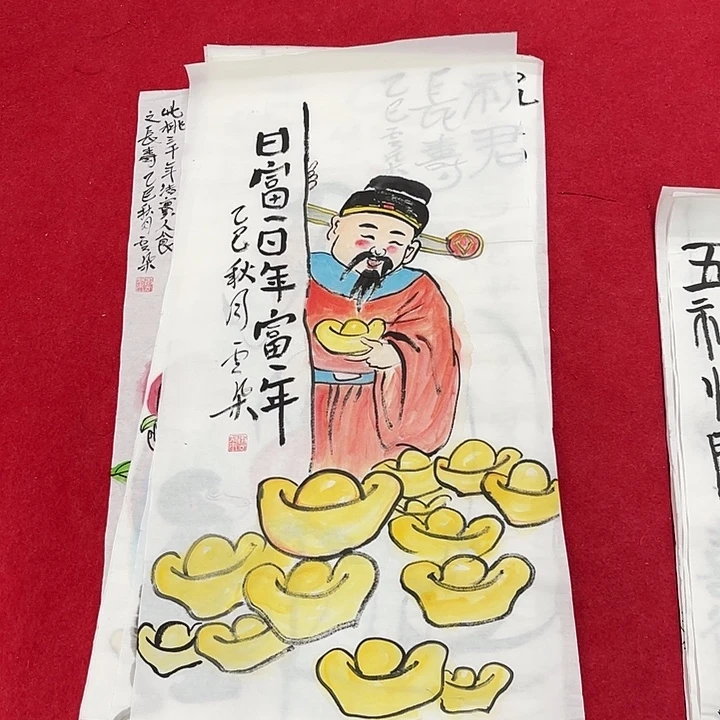 日富一日年富一年
乙巳秋月雲柒
此桃三千年結實人食
之長壽乙巳秋月雲柒
祝君
長壽
乙巳雲
五福临门